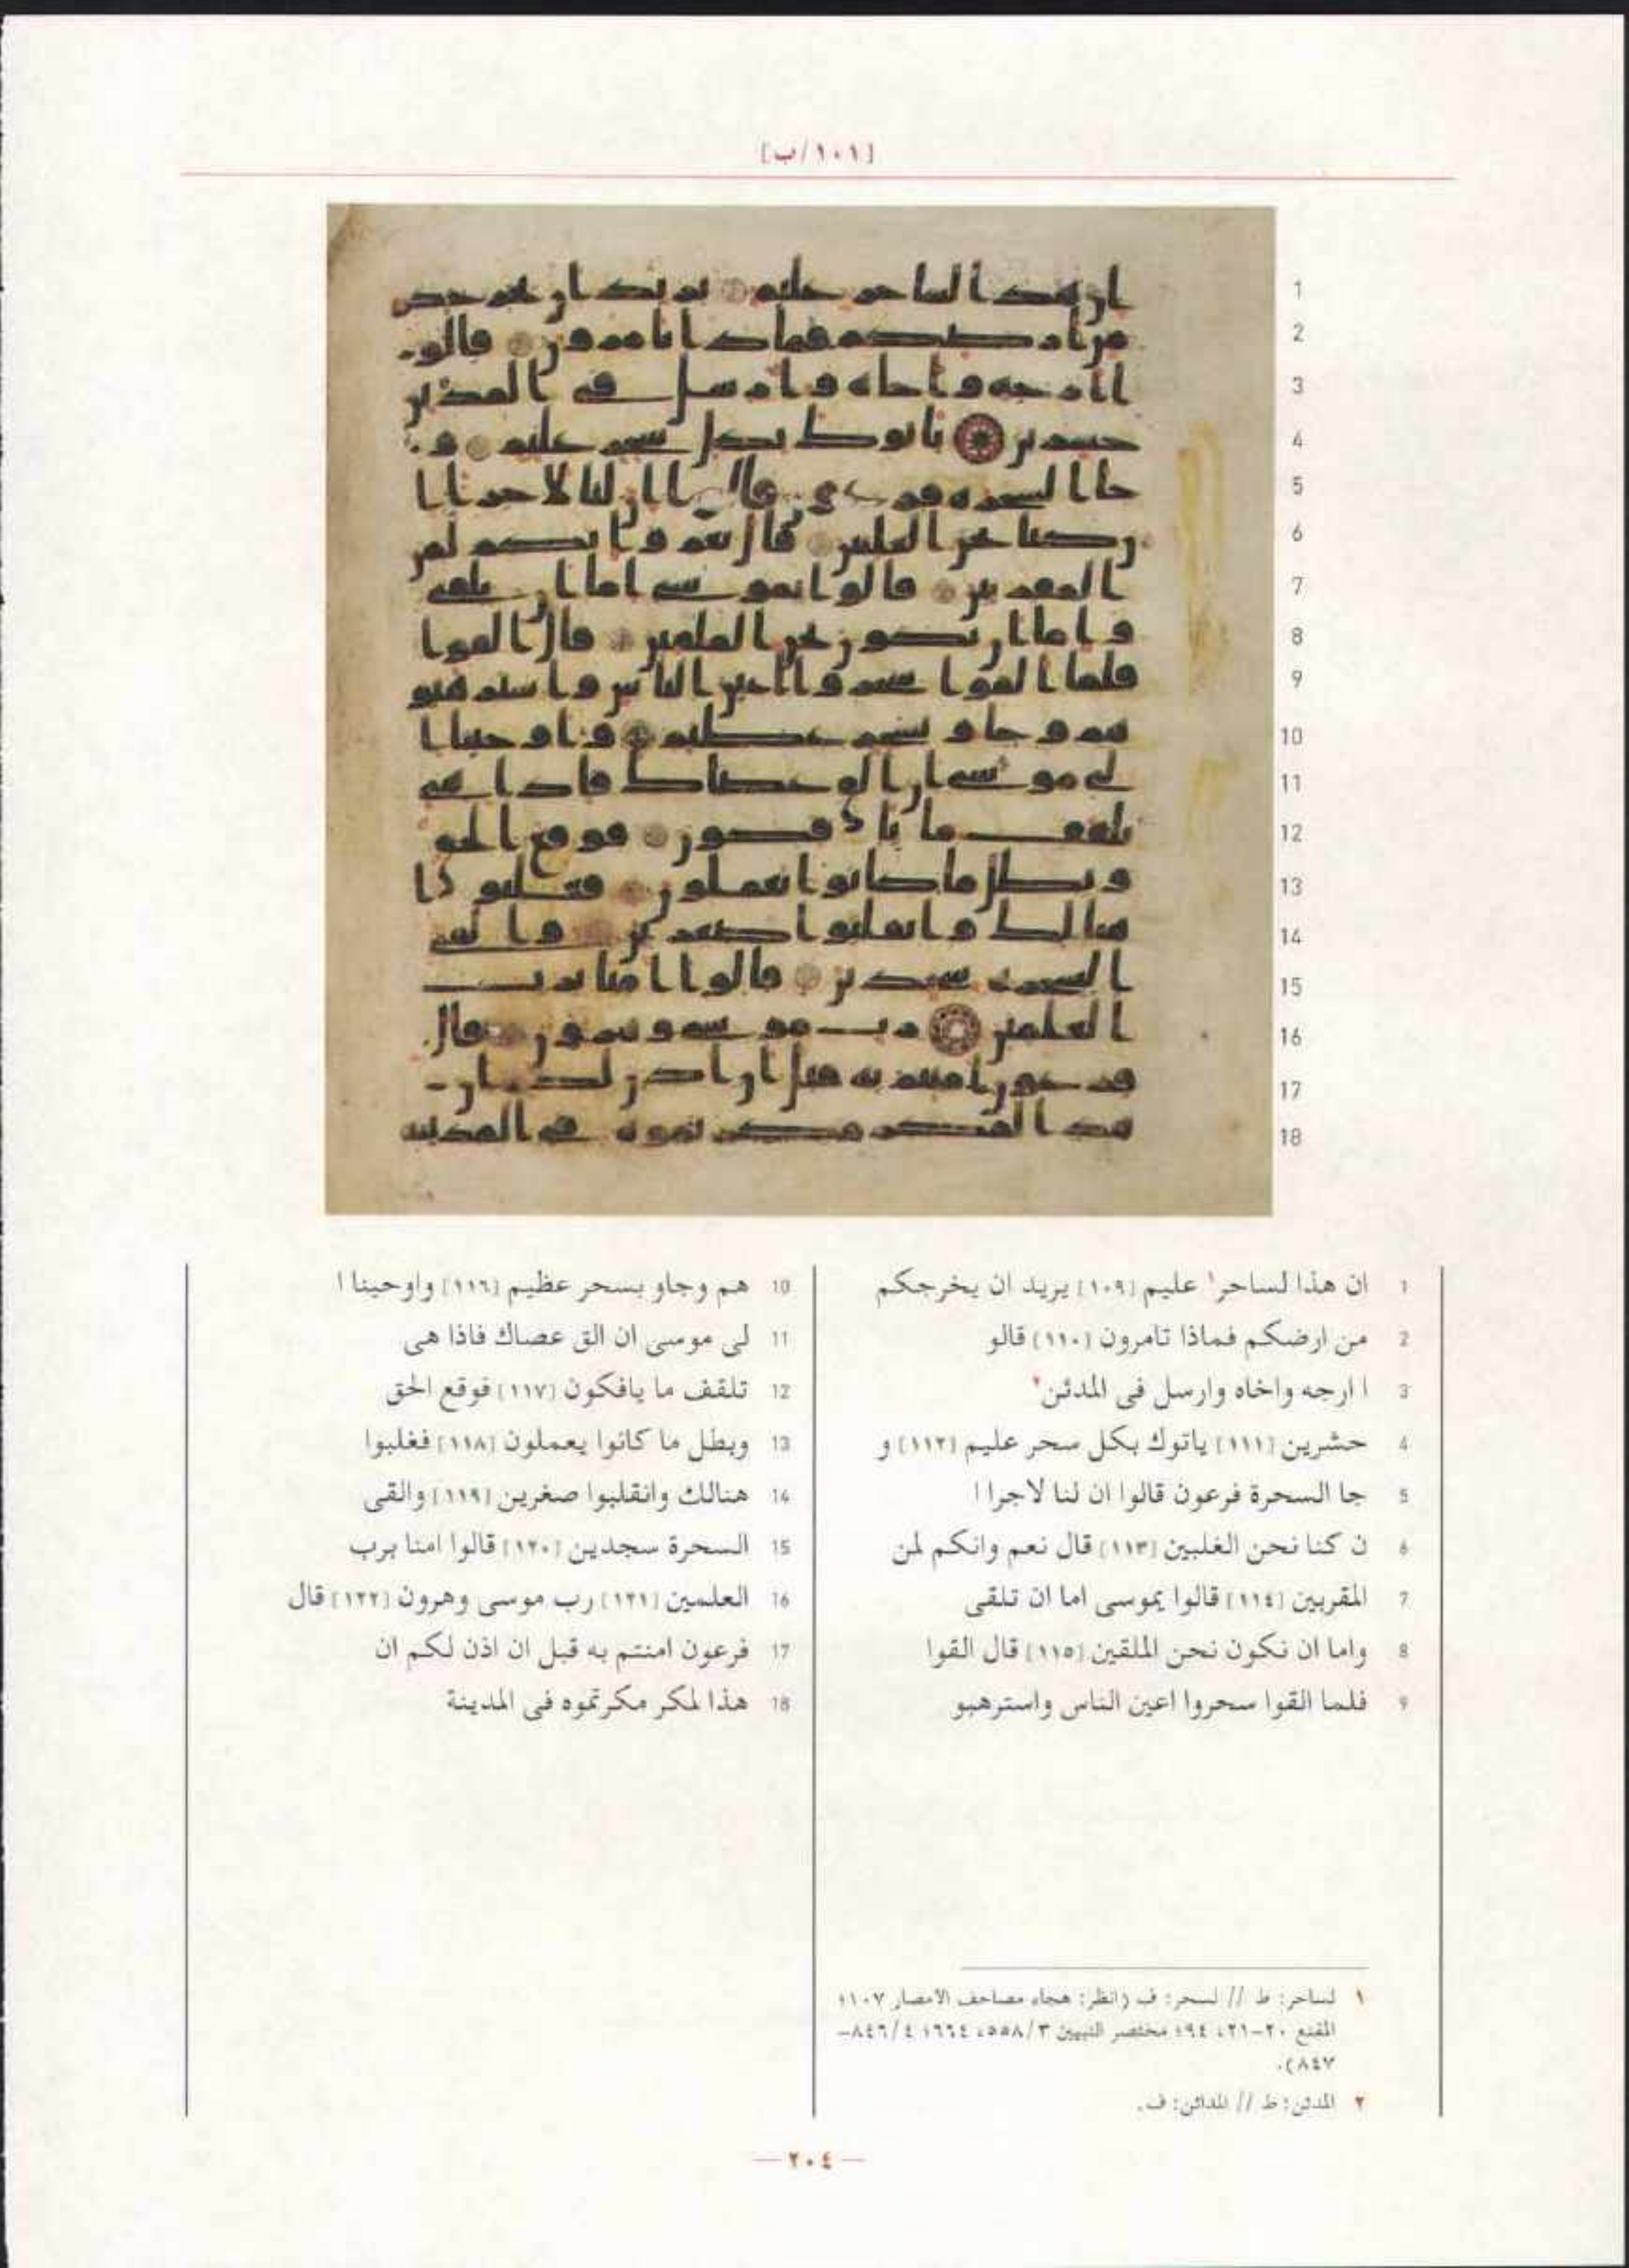 [١٠١/ب]
1
2
3
4
5
6
7
8
9
10
11
12
13
14
15
16
17
18
1 ان هذا لساحر١ عليم [١٠٩] يريد ان يخرجكم
2 من ارضكم فماذا تامرون [١١٠] قالو
3 ا ارجه واخاه وارسل فى المدئن٢
4 حشرين [١١١] ياتوك بكل سحر عليم [١١٢] و
5 جا السحرة فرعون قالوا ان لنا لاجرا ا
6 ن كنا نحن الغلبين [١١٣] قال نعم وانكم لمن
7 المقربين [١١٤] قالوا يموسى اما ان تلقى
8 واما ان نكون نحن الملقين [١١٥] قال القوا
9 فلما القوا سحروا اعين الناس واسترهبو
10 هم وجاو بسحر عظيم [١١٦] واوحينا ا
11 لى موسى ان الق عصاك فاذا هى
12 تلقف ما يافكون [١١٧] فوقع الحق
13 وبطل ما كانوا يعملون [١١٨] فغلبوا
14 هنالك وانقلبوا صغرين [١١٩] والقى
15 السحرة سجدين [١٢٠] قالوا امنا برب
16 العلمين [١٢١] رب موسى وهرون [١٢٢] قال
17 فرعون امنتم به قبل ان اذن لكم ان
18 هذا لمكر مكرتموه فى المدينة
١ لساحر: ط // لسحر: ف (انظر: هجاء مصاحف الامصار ١٠٧؛
المقنع ٢٠-٢١، ٩٤؛ مختصر التبيين ٥٥٨/٣، ٦٦٤؛ ٨٤٦/٤-
٨٤٧).
٢ المدئن: ط // المدائن: ف.
— ٢٠٤ —